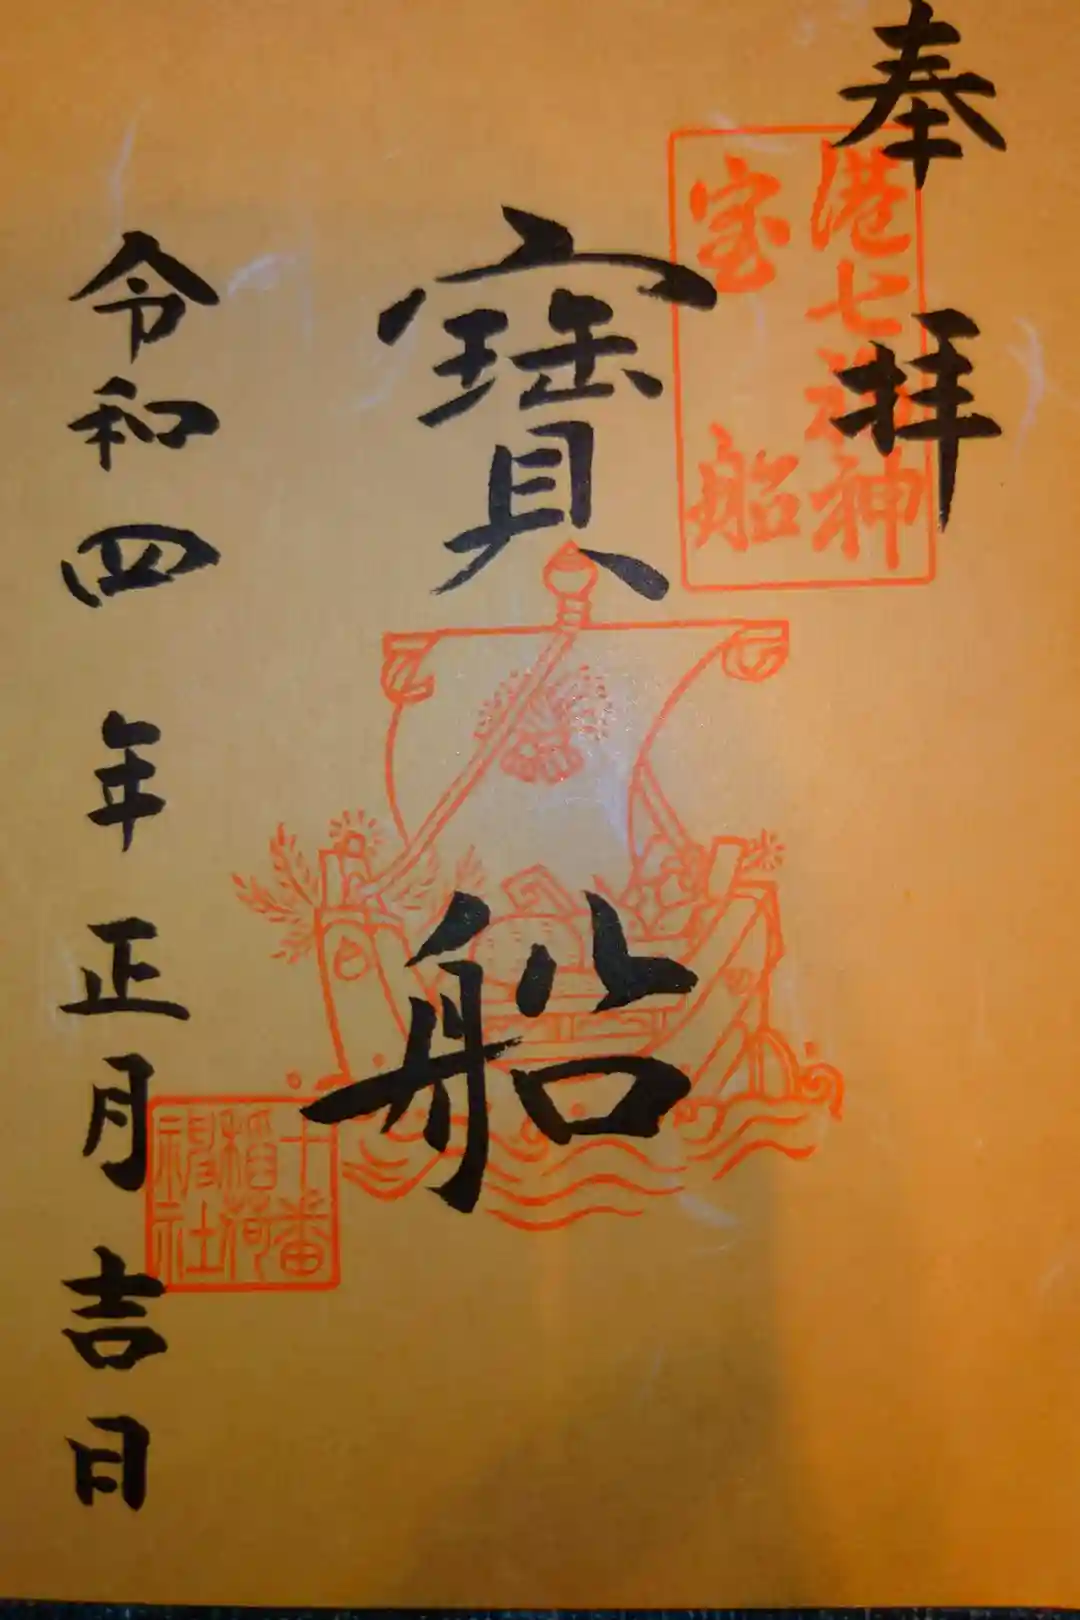 奉拝
港七福神
宝船
寶船
十番
稲荷
神社
令和四年正月吉日